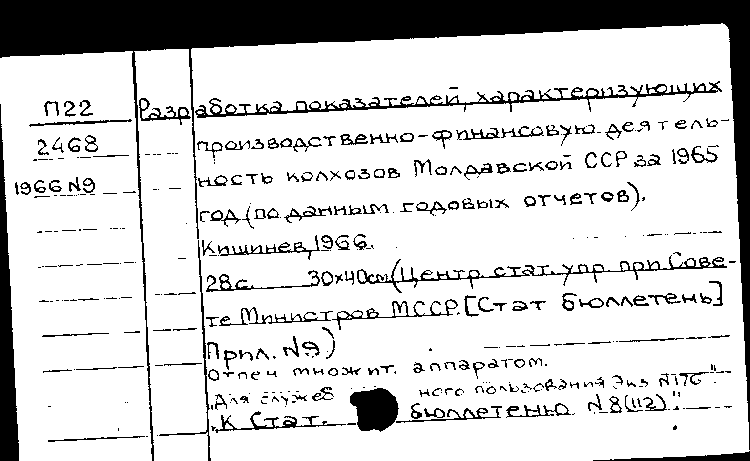 П22
2468
1966 N9
Разработка показателей, характеризующих
производственно-финансовую деятель-
ность колхозов Молдавской ССР за 1965
год (по данным годовых отчетов).
Кишинев, 1966.
28с. 30х40см (Центр. стат. упр. при Сове-
те Министров МССР. [Стат бюллетень]
Прил. N9)
Отпеч множит. аппаратом.
„Для служеб ного пользования Экз N176".
„К Стат. бюллетеню N8(112)".